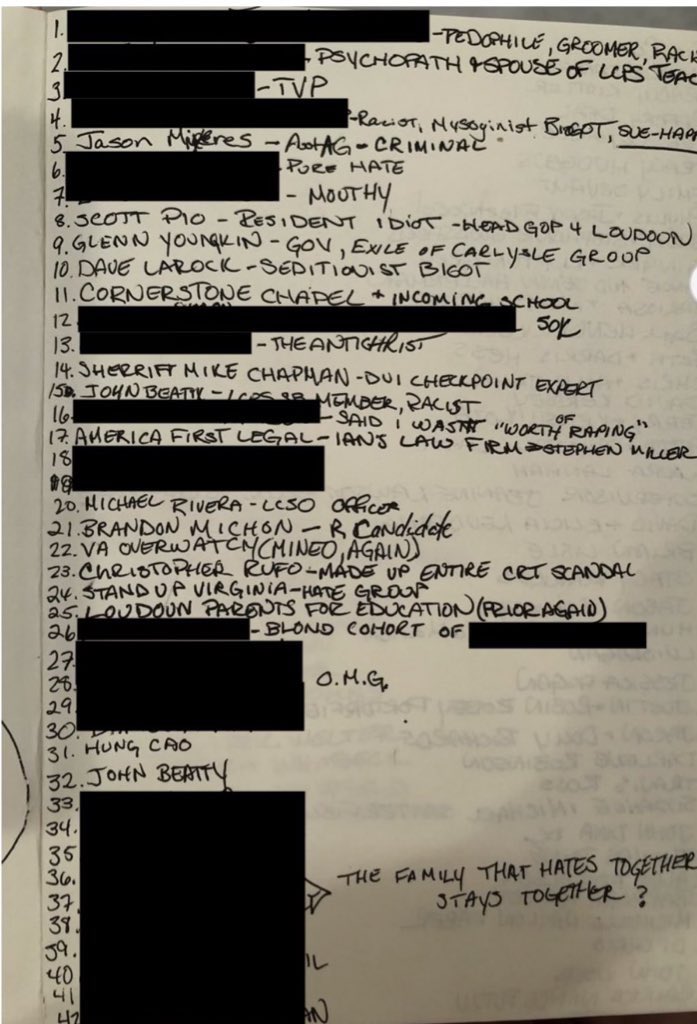 1. -PEDOPHILE, GROOMER, RACK
2. - PSYCHOPATH & SPOUSE OF LCPS TEAC
3 - TVP
4. -Racist, Mysoginist BIGOT, SUE-HAPP
5 Jason Miyeres - Ast AG - CRIMINAL
6. - PURE HATE
7. - MOUTHY
8. SCOTT PIO - RESIDENT IDIOT - HEAD GOP 4 LOUDOUN
9. GLENN YOUNGKIN - GOV, EXILE OF CARLYSLE GROUP
10. DAVE LAROCK - SEDITIONIST BIGOT
11. CORNERSTONE CHAPEL + INCOMING SCHOOL
12 50K
13. - THE ANTICHRIST
14. SHERRIFF MIKE CHAPMAN - DUI CHECKPOINT EXPERT
15. JOHN BEATTY - LCPS SB MEMBER, RACIST
16. - SAID I WASN'T "WORTH OF RAPING"
17. AMERICA FIRST LEGAL - IAN'S LAW FIRM STEPHEN MILLER
18
19
20. MICHAEL RIVERA - LCSO OFFICER
21. BRANDON MICHON - R Candidate
22. VA OVERWATCH (MINEO, AGAIN)
23. CHRISTOPHER RUFO - MADE UP ENTIRE CRT SCANDAL
24. STAND UP VIRGINIA - HATE GROUP
25. LOUDOUN PARENTS FOR EDUCATION (PRIOR AGAIN)
26 - BLOND COHORT OF
27.
28. O.M.G.
29.
30.
31. HUNG CAO
32. JOHN BEATTY
33.
34.
35
36. THE FAMILY THAT HATES TOGETHER
37. STAYS TOGETHER?
38.
39. IL
40
41
42 AN